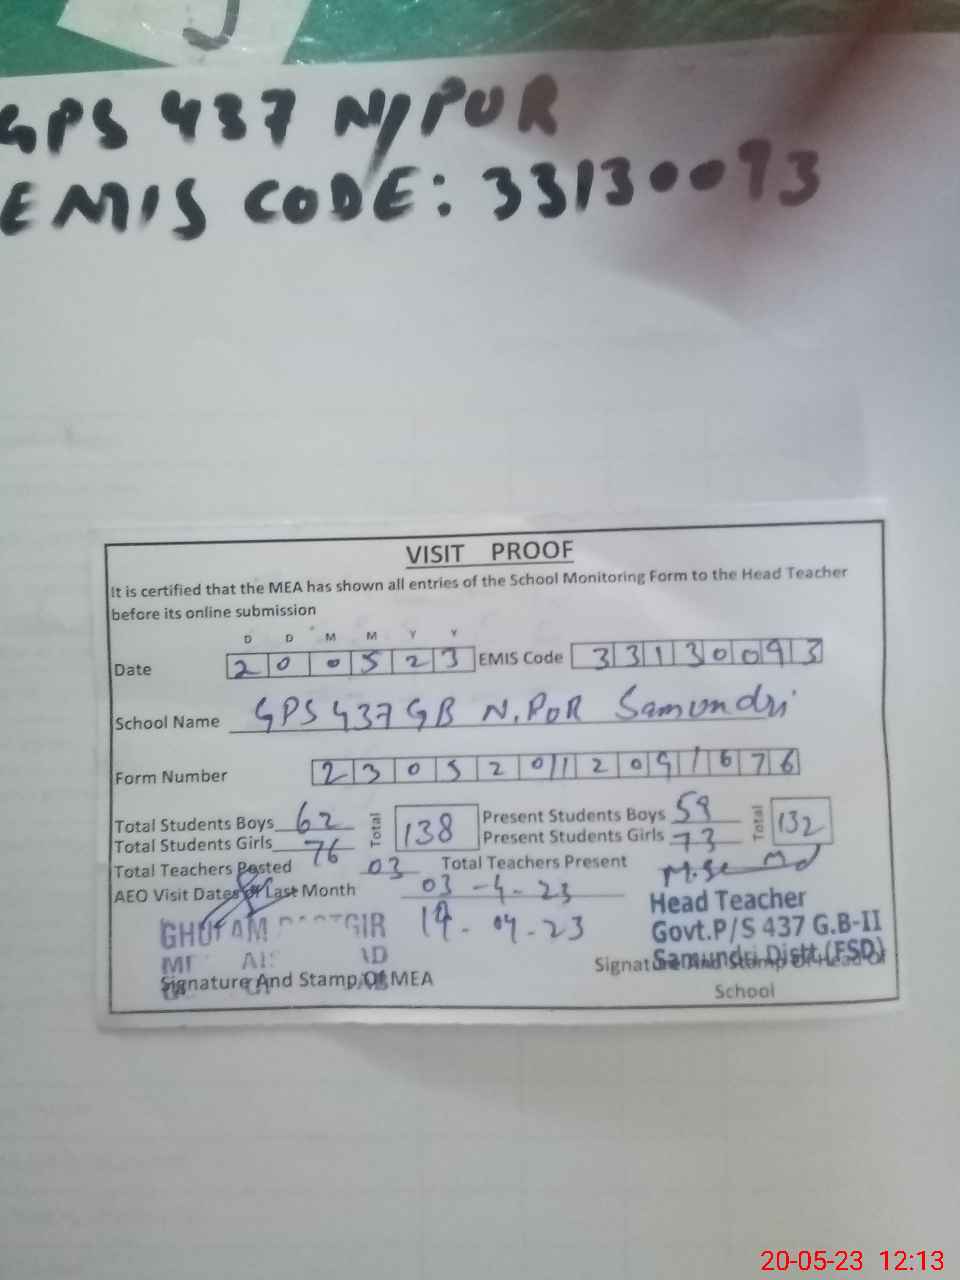 GPS 437 N/PUR
EMIS CODE: 33130093
VISIT PROOF
It is certified that the MEA has shown all entries of the School Monitoring Form to the Head Teacher
before its online submission
D D M M Y Y
Date 20 05 23 EMIS Code 33130093
School Name GPS 437 GB N.POR Samundri
Form Number 230520112091676
Total Students Boys 62 Total 138 Present Students Boys 59 Total 132
Total Students Girls 76 Present Students Girls 73
Total Teachers Posted 03 Total Teachers Present
AEO Visit Dates of Last Month 03-4-23
19-04-23
Head Teacher
Govt.P/S 437 G.B-II
Samundri Distt.(FSD)
Signature And Stamp Of MEA
Signature And Stamp Of Head Of
School
20-05-23 12:13